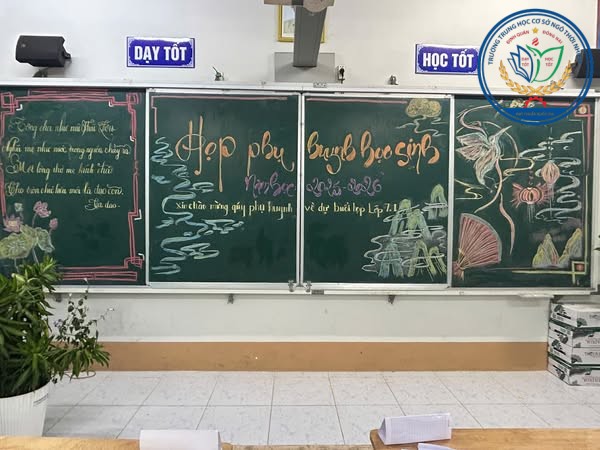 DẠY TỐT
HỌC TỐT
TRƯỜNG TRUNG HỌC CƠ SỞ NGÔ THỜI NHIỆM
DẠY TỐT
HỌC TỐT
Công cha như núi Thái Sơn
Nghĩa mẹ như nước trong nguồn chảy ra
Một lòng thờ mẹ kính cha
Cho tròn chữ hiếu mới là đạo con.
Ca dao
Họp phụ huynh học sinh
Năm học 2025-2026
Xin chào mừng qúy phụ huynh về dự buổi họp Lớp 7.1